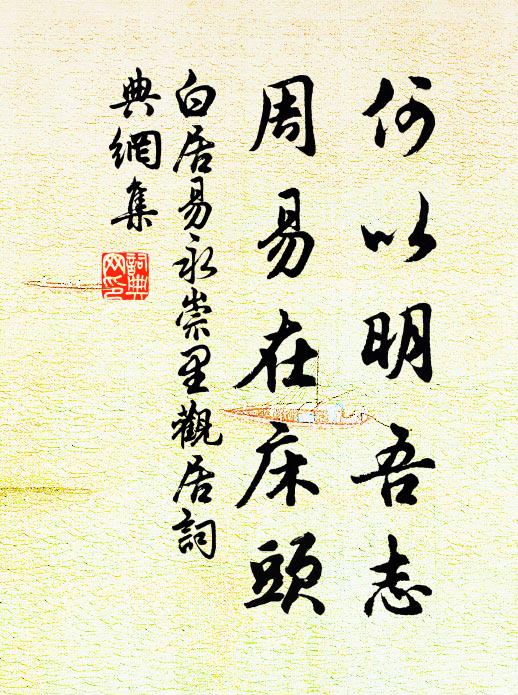 何以明吾志
周易在床頭
白居易永崇里觀居詞
典網集
詞典
网印